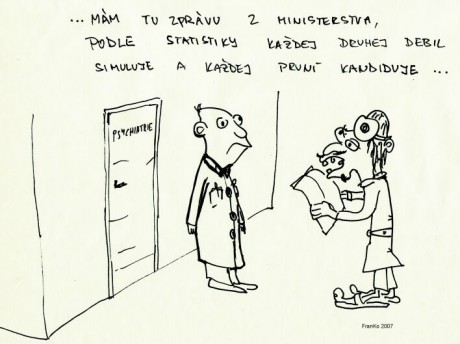 ...MÀM TU ZPRÀVU Z MINISTERSTVA,
PODLE STATISTIKY KAŽDEJ DRUHEJ DEBIL
SIMULUJE A KAŽDEJ PRVNÍ KANDIDUJE ...
PSYCHIATRIE
FranKo 2007